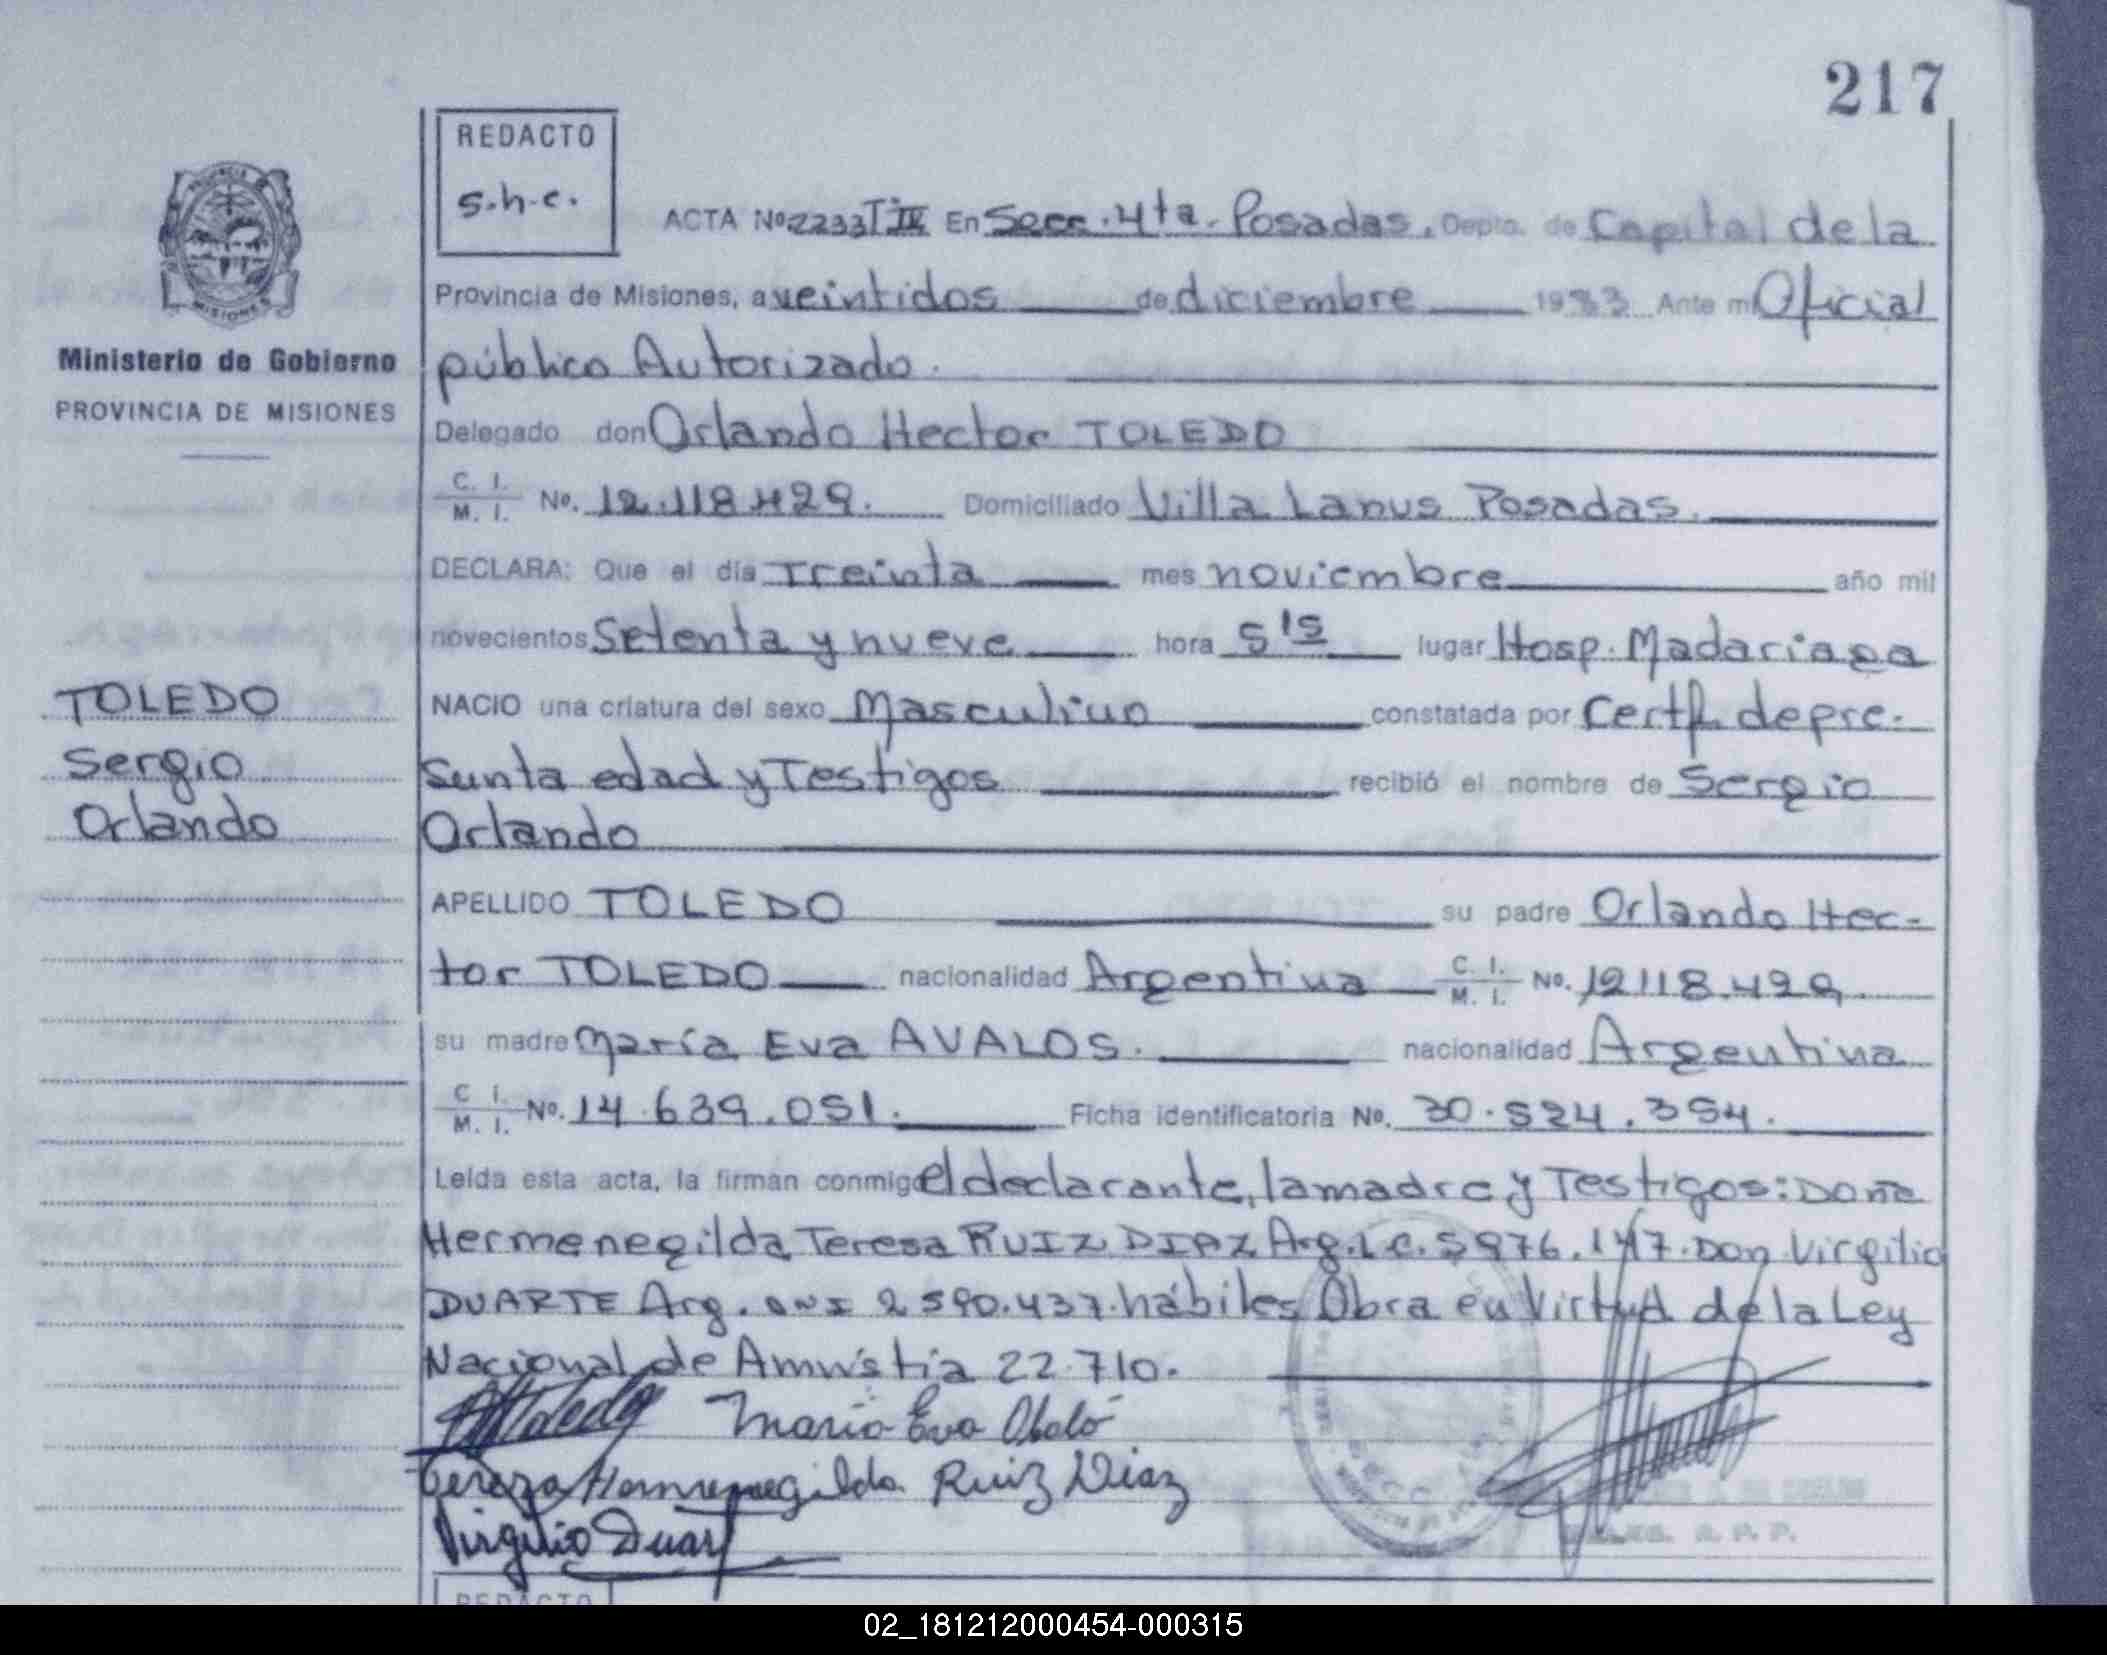 217
REDACTO
s.h.c.
ACTA Nº 2233 T IV En Secc. 4ta. Posadas. Depto. de Capital de la
Provincia de Misiones, a veintidos de diciembre 1983 Ante mi Oficial
público Autorizado.
Delegado don Orlando Hector TOLEDO
C. I.
M. I. Nº. 12.118.429. Domiciliado Villa Lanus Posadas.
DECLARA: Que el día Treinta mes noviembre año mil
novecientos Setenta y nueve hora 5 15 lugar Hosp. Madariaga
NACIO una criatura del sexo Masculino constatada por Certf. de pre-
sunta edad y Testigos recibió el nombre de Sergio
Orlando
APELLIDO TOLEDO su padre Orlando Hec-
tor TOLEDO nacionalidad Argentina C. I. M. I. Nº. 12118.429.
su madre María Eva AVALOS. nacionalidad Argentina
C. I. M. I. Nº. 14.639.051. Ficha identificatoria Nº. 30.524.354.
Leída esta acta, la firman conmigo el declarante, la madre y Testigos: Doña
Hermenegilda Teresa RUIZ DIAZ Arg. L.C. 5 976.147. Don Virgilio
DUARTE Arg. DNI 2 590.437. hábiles Obra en Virtud de la Ley
Nacional de Amnistía 22.710.
Toledo Maria Eva Abalo
Tereza Hermenegilda Ruiz Diaz
Virgilio Duart
REDACTO
PROVINCIA DE
MISIONES
Ministerio de Gobierno
PROVINCIA DE MISIONES
TOLEDO
Sergio
Orlando
02_181212000454-000315